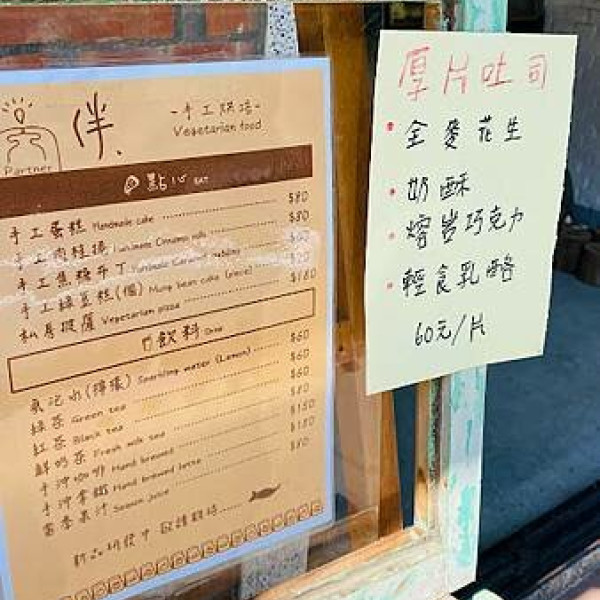 伴、
Partner
-手工烘培-
Vegetarian food
點心 EAT
手工蛋糕 Handmade cake $80
手工肉桂捲 Handmade Cinnamon rolls $80
手工焦糖布丁 Handmade Caramel pudding $60
手工綠豆糕(個) Mung bean cake (piece) $20
私房披薩 Vegetarian pizza $180
飲料 Drink
氣泡水(檸檬) Sparkling water (Lemon) $60
綠茶 Green tea $60
紅茶 Black tea $60
鮮奶茶 Fresh milk tea $80
手沖咖啡 Hand brewed $150
手沖拿鐵 Hand brewed latte $180
當季果汁 Season juice $80
新品研發中 敬請期待......
厚片吐司
全麥花生
奶酥
熔岩巧克力
輕食乳酪
60元/片